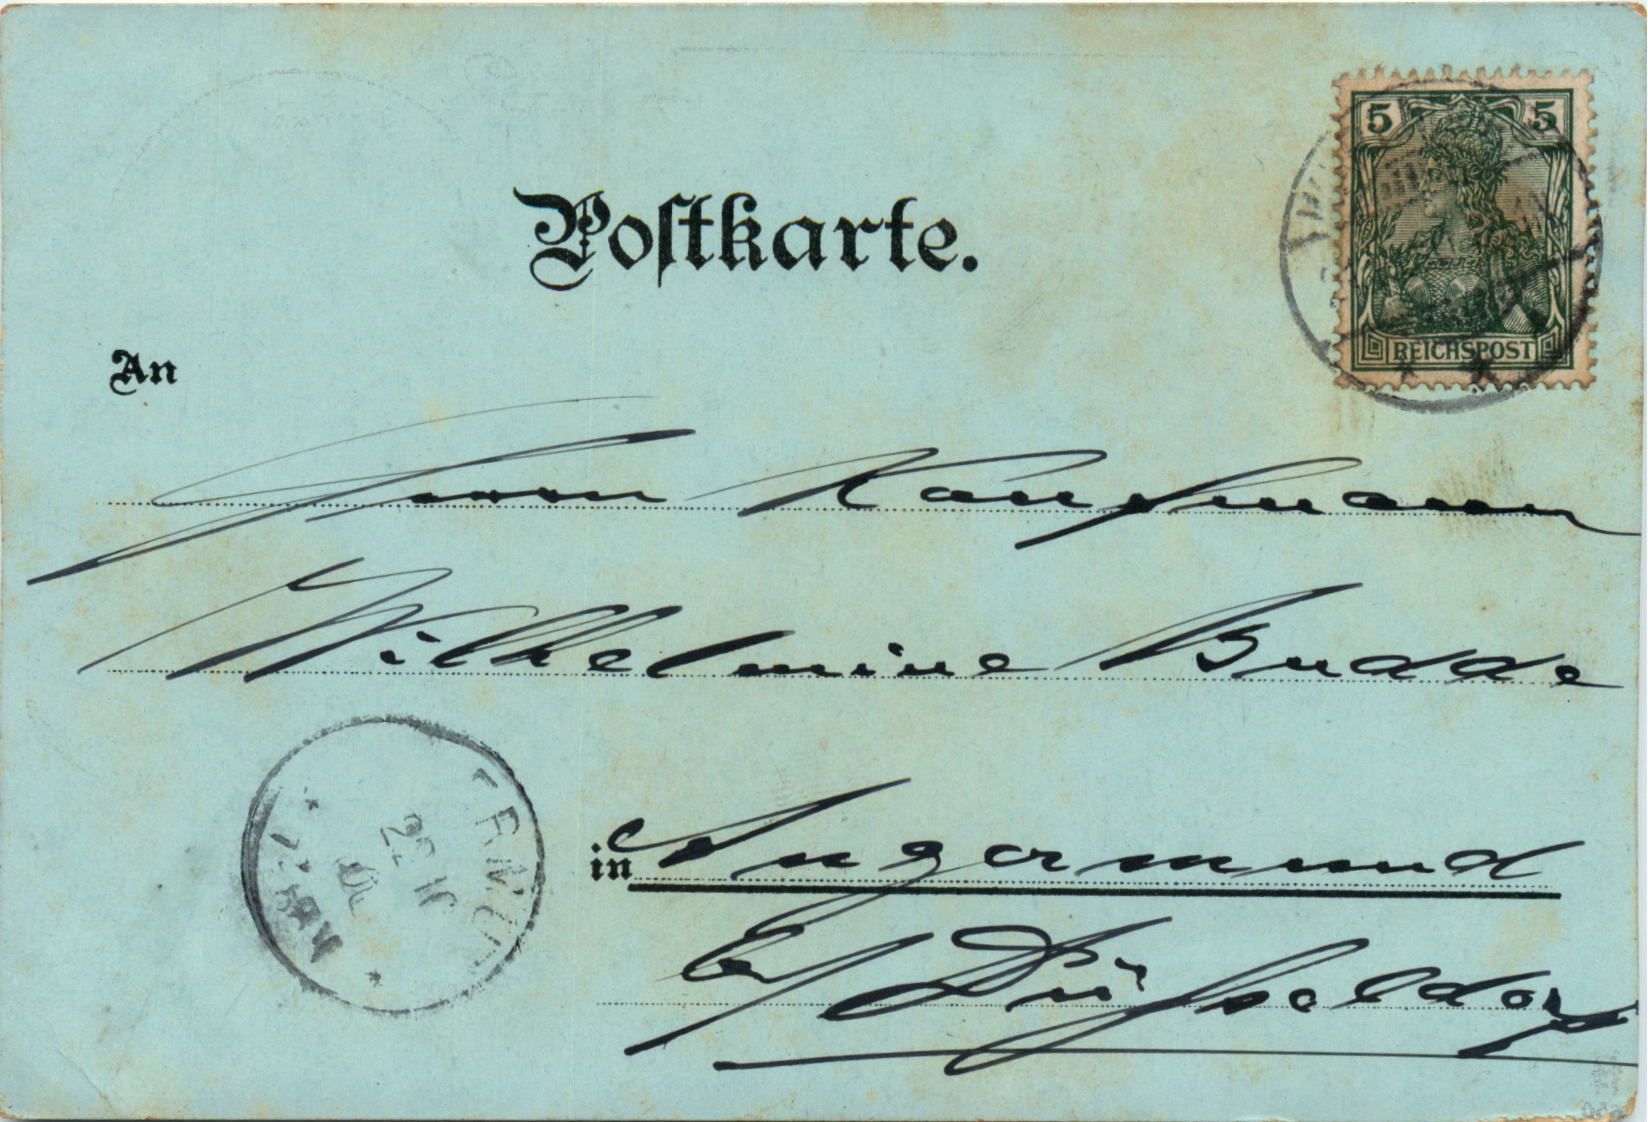 Postkarte.
5 5
REICHSPOST
An
Frau Kaufmann
Wilhelmine Budde
in Angermund
b/ Düsseldorf